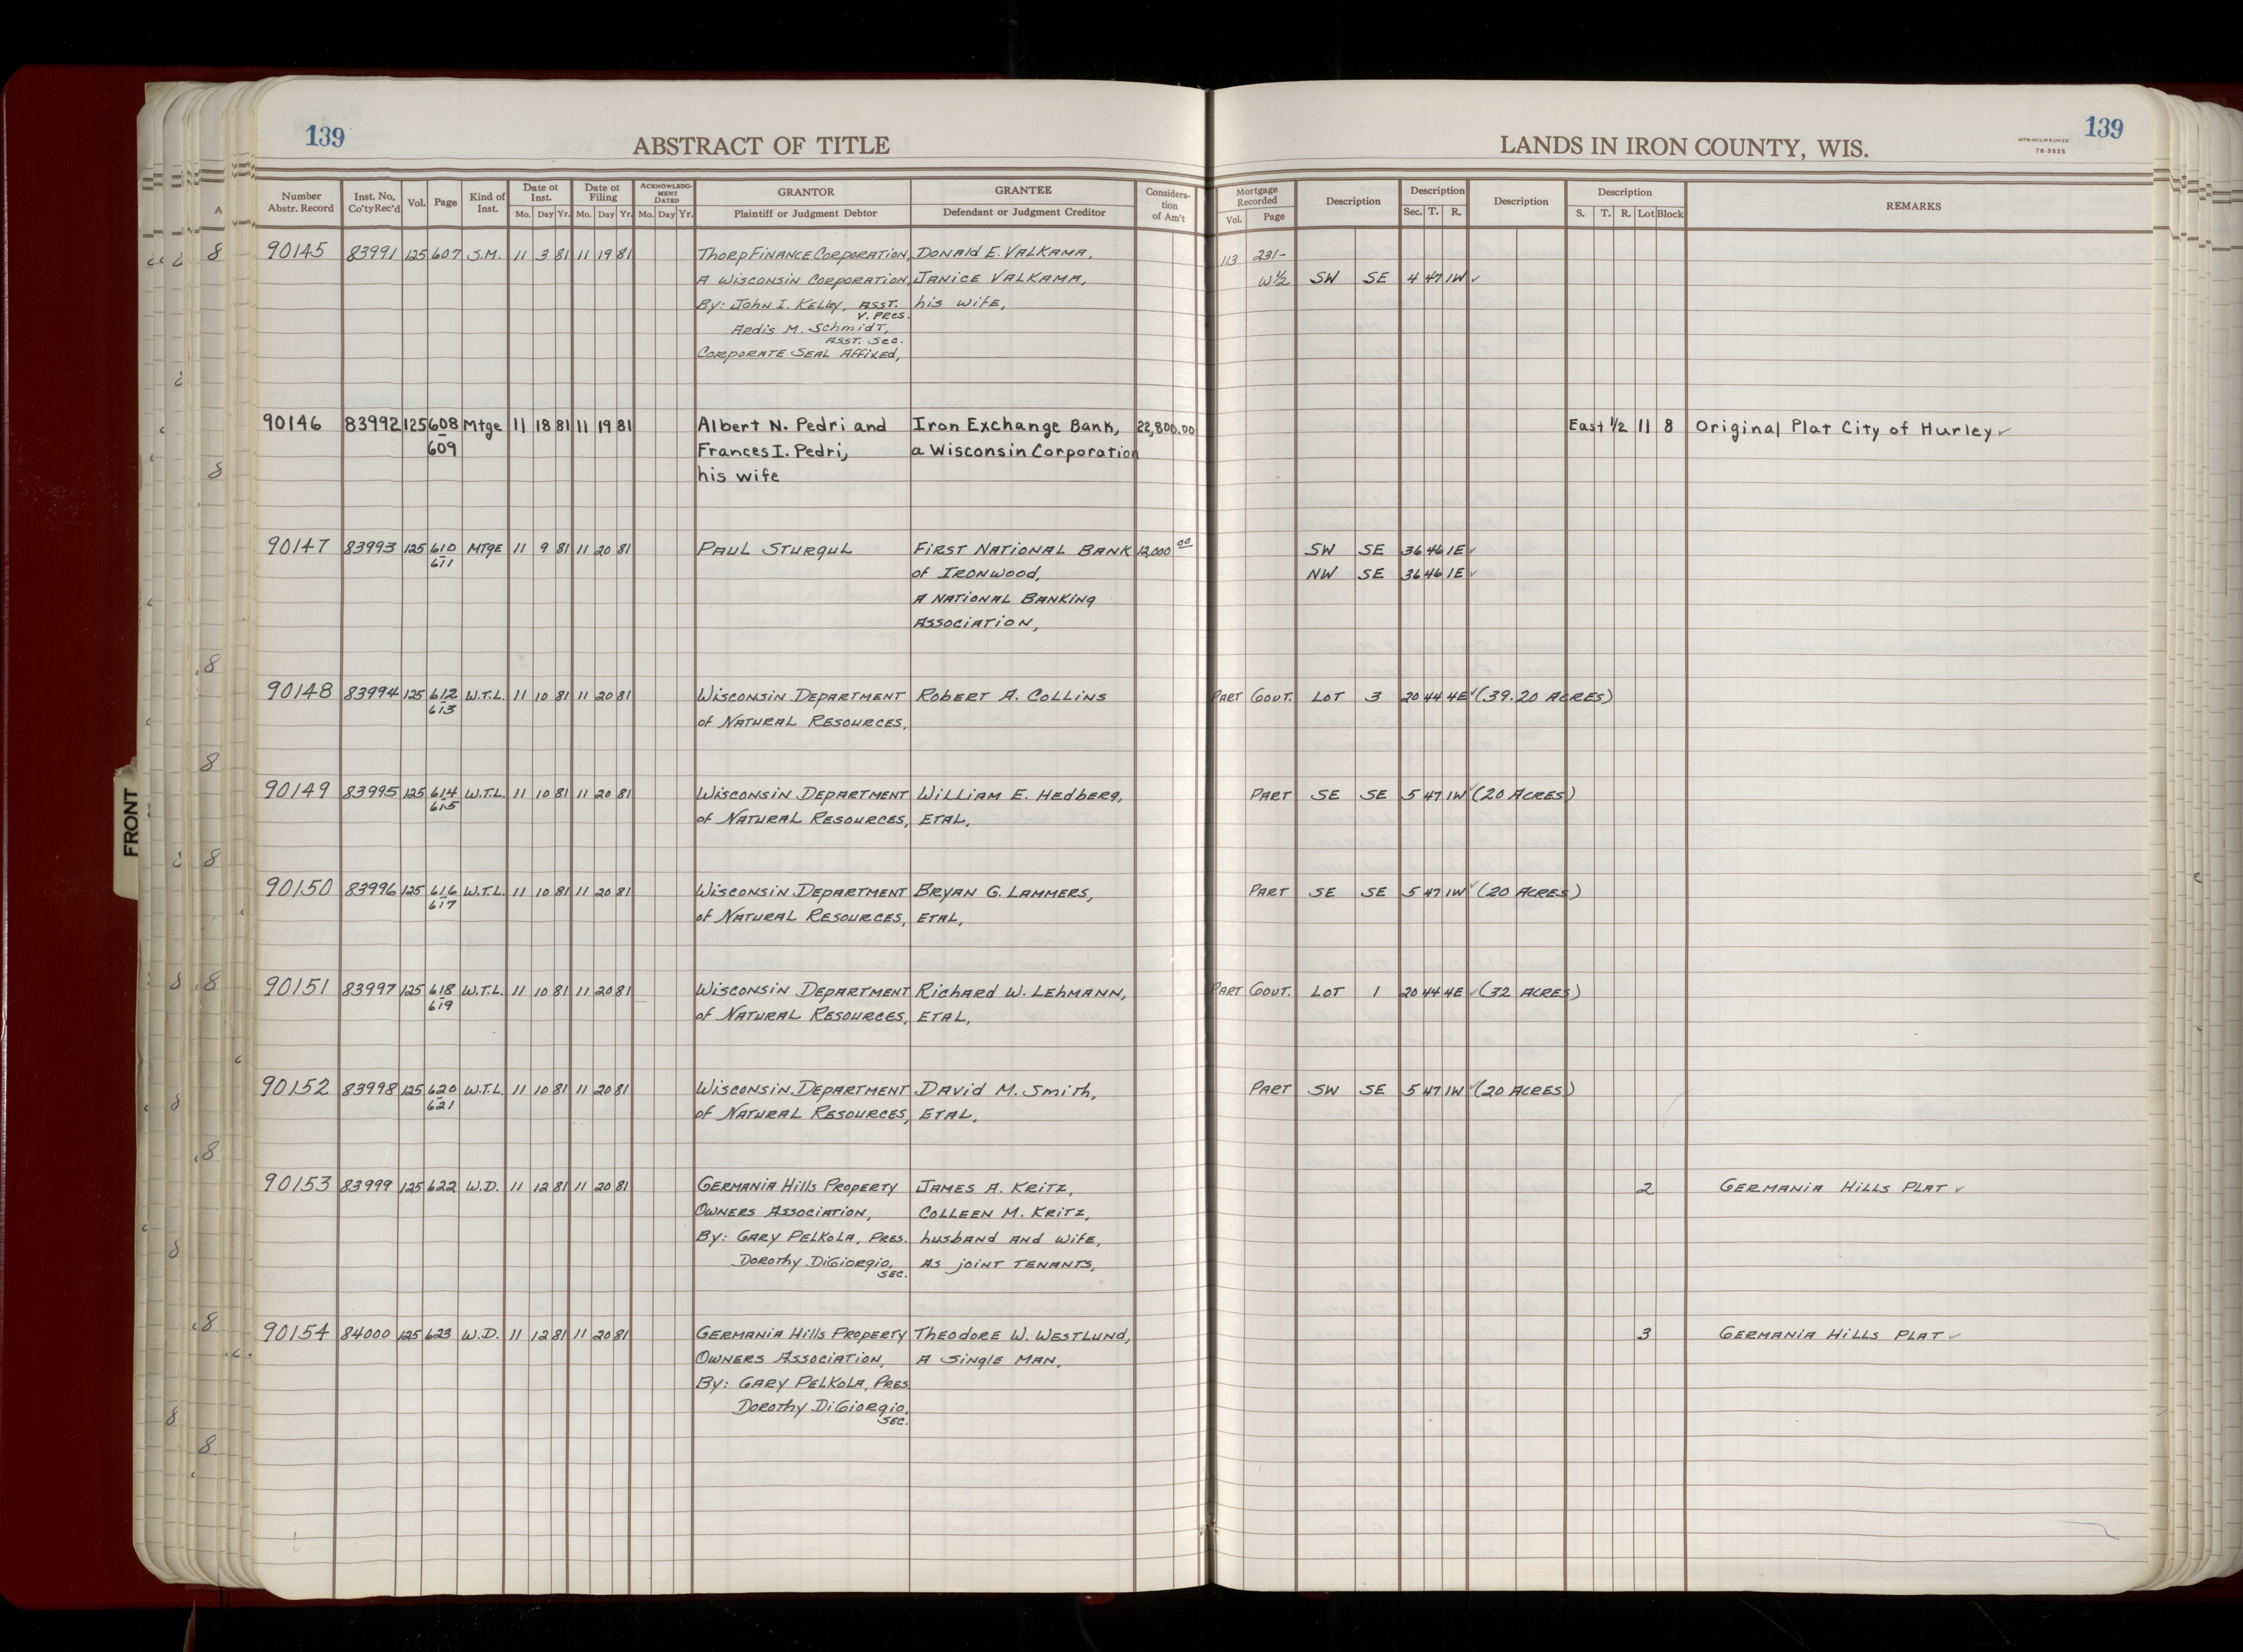 139
ABSTRACT OF TITLE
LANDS IN IRON COUNTY, WIS.
WPB-MILWAUKEE
78-3525
139
Number Abstr. Record Inst. No. Co'ty Rec'd Vol. Page Kind of Inst. Date of Inst. Mo. Day Yr. Date of Filing Mo. Day Yr. ACKNOWLEDGMENT DATED Mo. Day Yr. GRANTOR Plaintiff or Judgment Debtor GRANTEE Defendant or Judgment Creditor Consideration of Am't Mortgage Recorded Vol. Page Description Description Sec. T. R. Description Description S. T. R. Lot Block REMARKS
90145 83991 125 607 S.M. 11 3 81 11 19 81 Thorp Finance Corporation, Donald E. Valkama, 113 231-
A Wisconsin Corporation, Janice Valkama, W½ SW SE 4 47 1W ✓
By: John I. Kelly, Asst. his wife,
V. Pres.
Ardis M. Schmidt,
Asst. Sec.
Corporate Seal Affixed,
90146 83992 125 608 Mtge 11 18 81 11 19 81 Albert N. Pedri and Iron Exchange Bank, 22,800.00 East ½ 11 8 Original Plat City of Hurley ✓
609 Frances I. Pedri, a Wisconsin Corporation
his wife
90147 83993 125 610 Mtge 11 9 81 11 20 81 Paul Sturgul First National Bank 12,000 00 SW SE 36 46 1E ✓
611 of Ironwood, NW SE 36 46 1E ✓
A National Banking
Association,
90148 83994 125 612 W.T.L. 11 10 81 11 20 81 Wisconsin Department Robert A. Collins Part Gout. Lot 3 20 44 4E ✓ (39.20 Acres)
613 of Natural Resources,
90149 83995 125 614 W.T.L. 11 10 81 11 20 81 Wisconsin Department William E. Hedberg, Part SE SE 5 47 1W ✓ (20 Acres)
615 of Natural Resources, Etal,
90150 83996 125 616 W.T.L. 11 10 81 11 20 81 Wisconsin Department Bryan G. Lammers, Part SE SE 5 47 1W ✓ (20 Acres)
617 of Natural Resources, Etal,
90151 83997 125 618 W.T.L. 11 10 81 11 20 81 Wisconsin Department Richard W. Lehmann, Part Gout. Lot 1 20 44 4E ✓ (32 Acres)
619 of Natural Resources, Etal,
90152 83998 125 620 W.T.L. 11 10 81 11 20 81 Wisconsin Department David M. Smith, Part SW SE 5 47 1W ✓ (20 Acres)
621 of Natural Resources, Etal,
90153 83999 125 622 W.D. 11 12 81 11 20 81 Germania Hills Property James A. Kritz, 2 Germania Hills Plat ✓
Owners Association, Colleen M. Kritz,
By: Gary Pelkola, Pres. husband and wife,
Dorothy DiGiorgio, As joint tenants,
Sec.
90154 84000 125 623 W.D. 11 12 81 11 20 81 Germania Hills Property Theodore W. Westlund, 3 Germania Hills Plat ✓
Owners Association, A Single Man,
By: Gary Pelkola, Pres
Dorothy DiGiorgio,
Sec.
FRONT